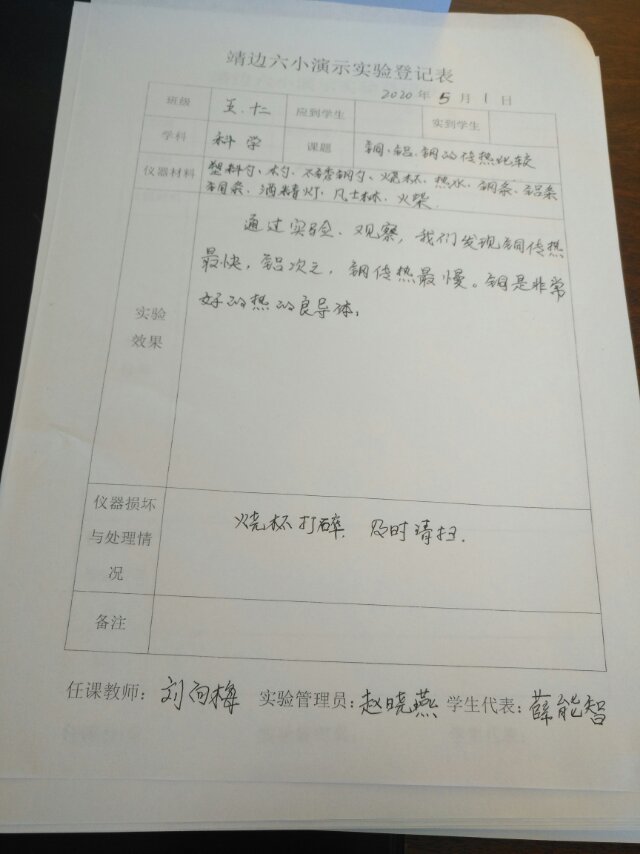 靖边六小演示实验登记表
2020年 5 月 1 日
班级 五.十二 应到学生 实到学生
学科 科学 课题 铜、铝、钢的传热比较
仪器材料 塑料勺、木勺、不锈钢勺、烧杯、热水、铜条、铝条
钢条、酒精灯、凡士林、火柴.
实验
效果
通过实验、观察，我们发现铜传热
最快，铝次之，钢传热最慢。铜是非常
好的热的良导体。
仪器损坏
与处理情
况
烧杯打碎. 及时清扫.
备注
任课教师：刘向梅 实验管理员：赵晓燕 学生代表：薛能智